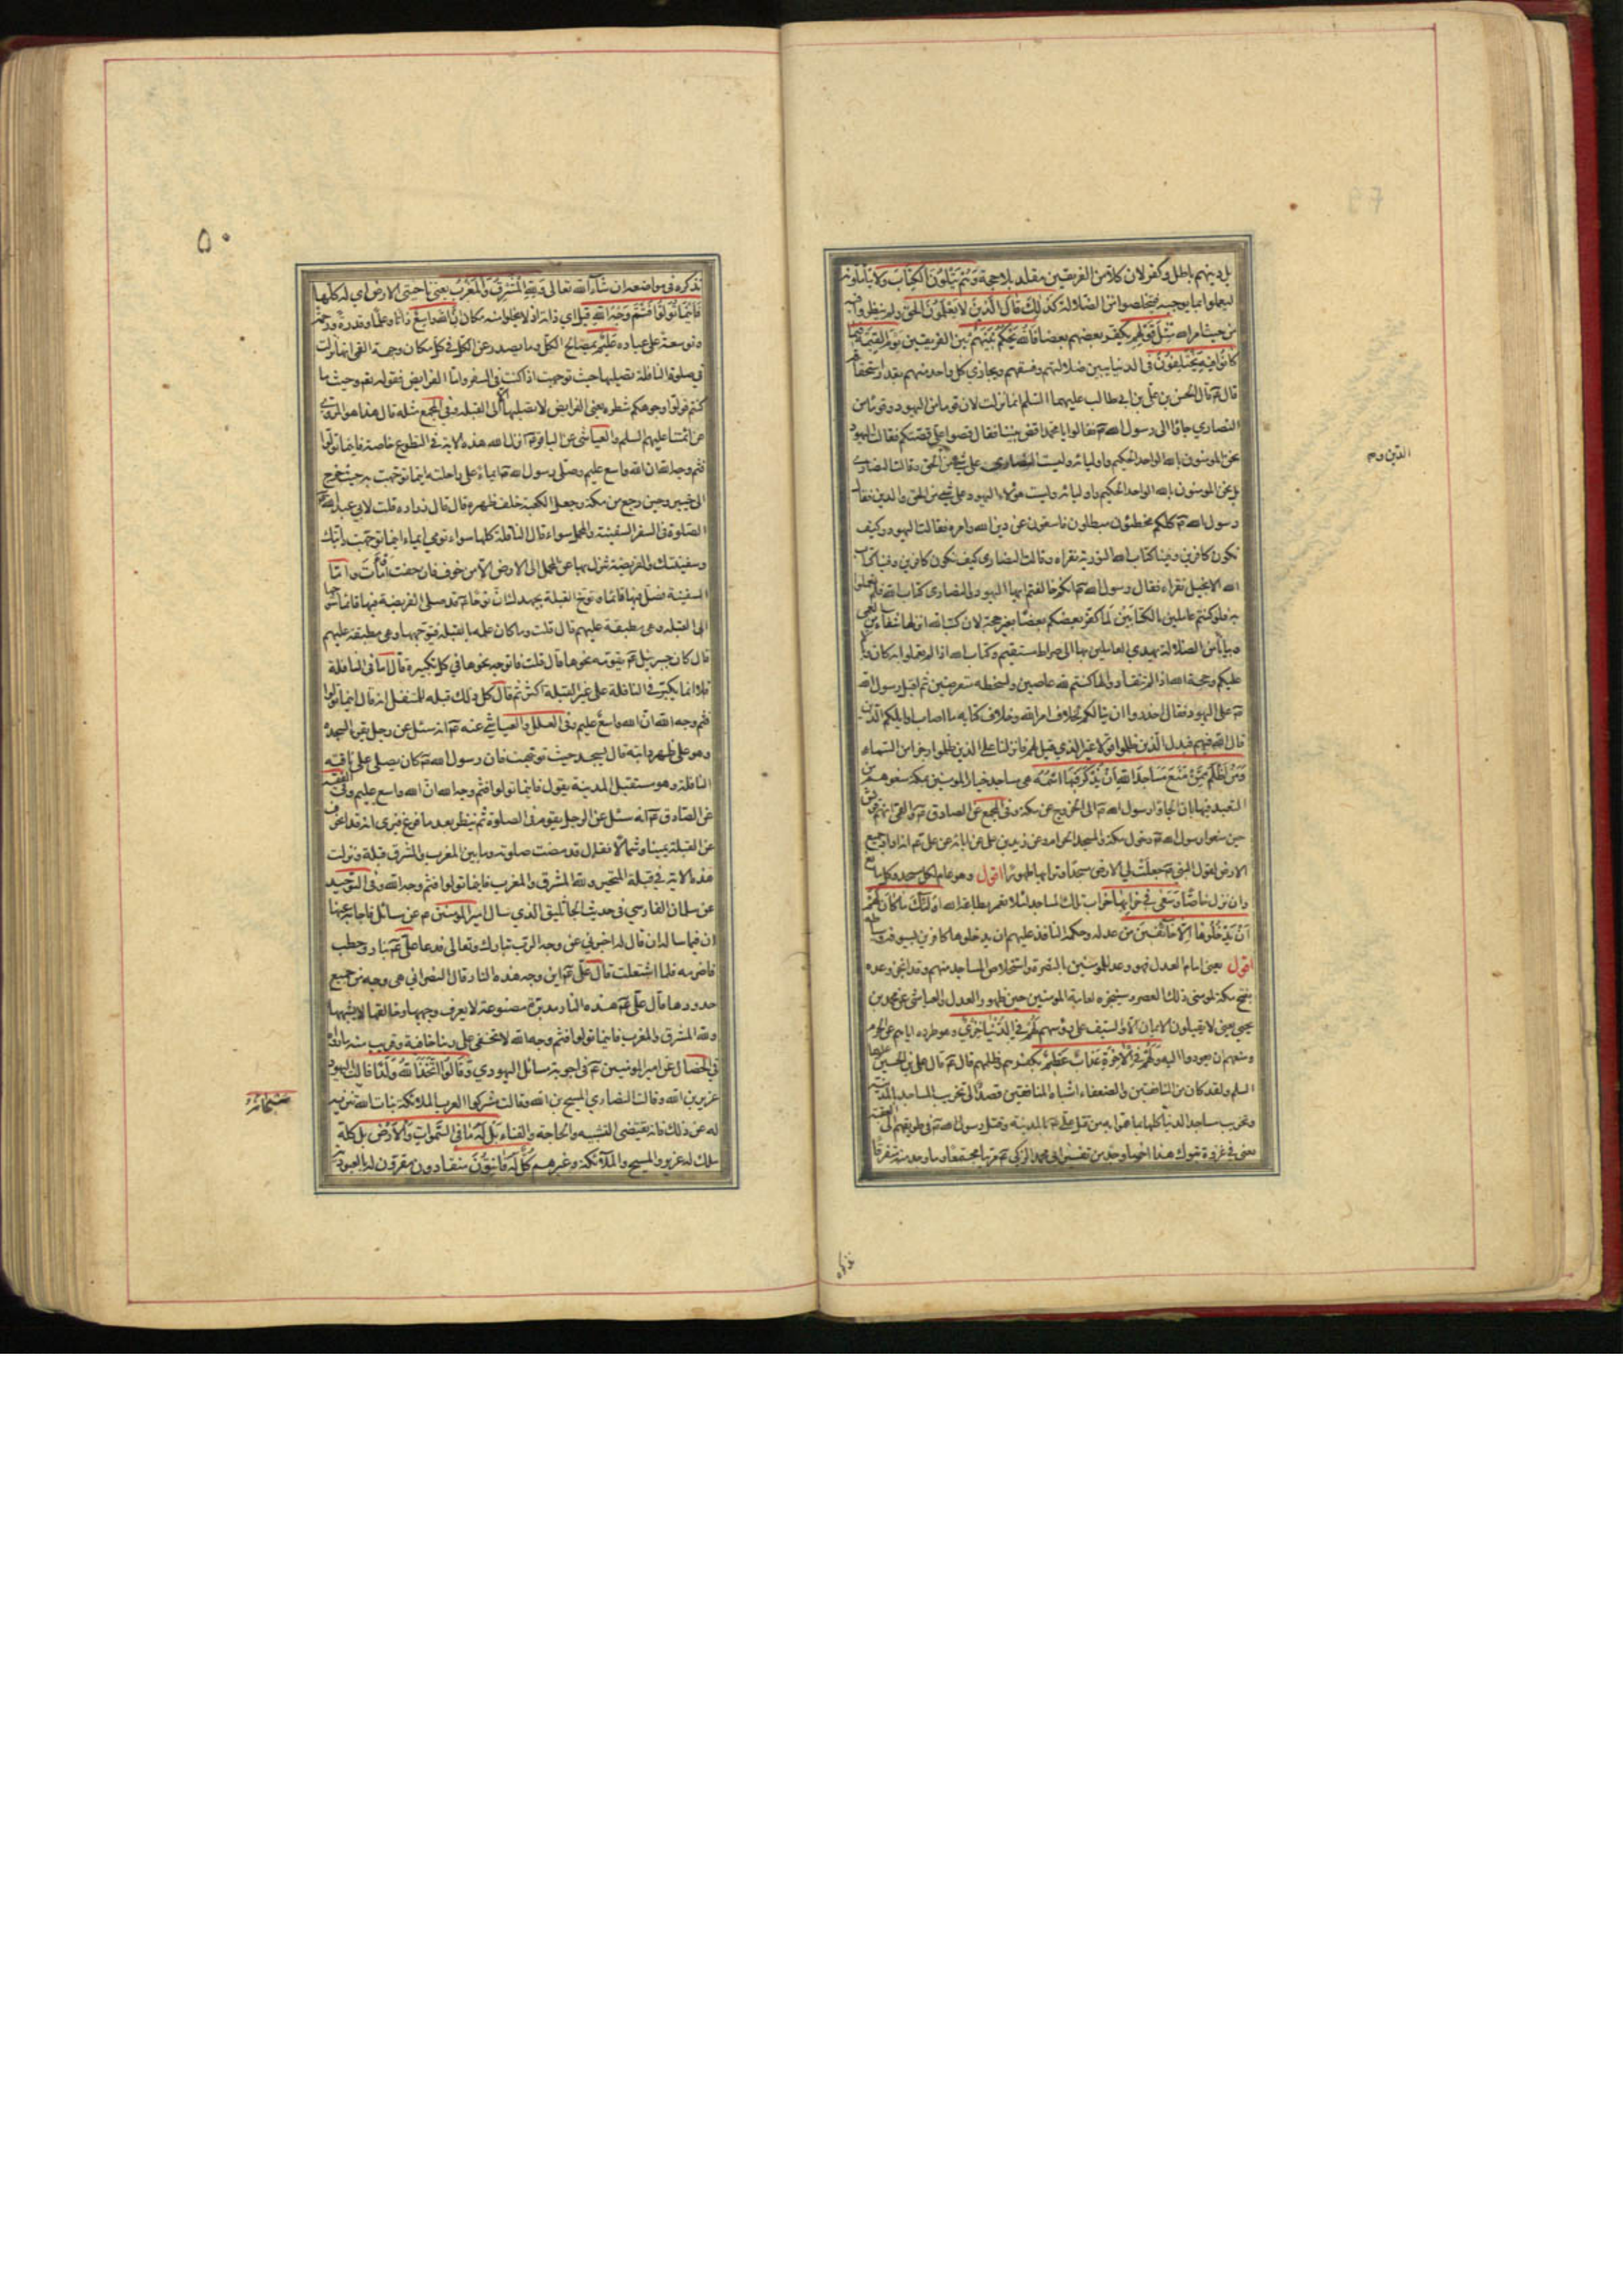 بل دينهم باطل وكفر لان كلا من الفريقين مقلد بلا حجة وهم يتلون الكتاب ولا يتأملونه
ليعملوا بما يوجبه فيتخلصوا من الضلالة كذلك قال الذين لا يعلمون الحق ولم ينظروا فيه
من حيث امر الله مثل قولهم يكفر بعضهم بعضا فالله يحكم بينهم بين الفريقين يوم القيمة فيما
كانوا فيه يختلفون في الدنيا يبين ضلالتهم وفسقهم ويجازي كل واحد منهم بقدر استحقاقه
قال ع قال الحسن بن علي بن ابي طالب عليهما السلم انما نزلت لان قوما من اليهود وقوما من
النصارى جاؤا الى رسول الله ص فقالوا يا محمد اقض بيننا فقال قصوا علي قصتكم فقالت اليهود
نحن المؤمنون بالله الواحد الحكيم واوليائه وليست النصارى على شيء من الحق وقالت النصارى
بل نحن المؤمنون بالله الواحد الحكيم واوليائه وليست هؤلاء اليهود على شيء من الحق والدين فقال
رسول الله ص كلكم مخطئون مبطلون فاسقون عن دين الله وامره فقالت اليهود وكيف
نكون كافرين وفينا كتاب الله التورية نقراه وقالت النصارى كيف نكون كافرين وفينا كتاب
الله الانجيل نقراه فقال رسول الله ص انكم خالفتم ايها اليهود والنصارى كتاب الله فلم تعملوا
به فلو كنتم عاملين بالكتابين لما كفر بعضكم بعضا بغير حجة لان كتب الله انزلها شفاء من العمى
وبيانا من الضلالة يهدي العاملين بها الى صراط مستقيم وكتاب الله اذا لم تعملوا به كان وبالا
عليكم وحجة الله اذا لم تنقادوا لها كنتم لله عاصين ولسخطه متعرضين ثم اقبل رسول الله
ص على اليهود فقال احذروا ان ينالكم بخلاف امر الله وخلاف كتابه ما اصاب اوايلكم الذين
قال الله فيهم فبدل الذين ظلموا قولا غير الذي قيل لهم فانزلنا على الذين ظلموا رجزا من السماء
ومن اظلم ممن منع مساجد الله ان يذكر فيها اسمه هي مساجد خيار المؤمنين بمكة منعوهم من
التعبد فيها بان الجاؤا رسول الله ص الى الخروج عن مكة وفي المجمع عن الصادق ع والقمي انهم قريش
حين منعوا رسول الله ص دخول مكة والمسجد الحرام وعن زيد بن علي عن ابائه عن علي ع انه اراد جميع
الارض لقول النبي ص جعلت لي الارض مسجدا وترابها طهورا اقول وهو عام لكل مسجد وكل مانع
وان نزل خاصا وسعى في خرابها خراب تلك المساجد لئلا تعمر بطاعة الله اولئك ما كان لهم
ان يدخلوها الا خائفين من عدله وحكمه النافذ عليهم ان يدخلوها كافرين بسيوفه وسياطه
اقول يعني امام العدل فهو وعد للمؤمنين بالنصرة واستخلاص المساجد منهم وقد انجز وعده
بفتح مكة لمؤمني ذلك العصر وسينجزه لعامة المؤمنين حين ظهور العدل والعياشي عن محمد بن
يحيى يعني لا يقبلون الايمان الا والسيف على رؤسهم لهم في الدنيا خزي وهو طرده اياهم عن الحرم
ومنعهم ان يعودوا اليه ولهم في الاخرة عذاب عظيم بكفرهم وظلمهم قال ع قال علي بن الحسين عليهما
السلم ولقد كان من المنافقين والضعفاء اشباه المنافقين قصدا الى تخريب المساجد بالمدينة
وتخريب مساجد الدنيا كلها بما هموا به من قتل علي ع بالمدينة وقتل رسول الله ص في طريقهم الى العقبة
يعني في غزوة تبوك
الدين وم
٥٠
نذكره في مواضعه ان شاء الله تعالى ولله المشرق والمغرب يعني ناحيتي الارض اي له كلها
فاينما تولوا فثم وجه الله قيل اي ذاته اذ لا يخلو منه مكان ان الله واسع ذاتا وعلما وقدرة ورحمة
وتوسعة على عباده عليم بمصالح الكل وما يصدر عن الكل في كل مكان وجهة القمي انها نزلت
في صلوة النافلة تصليها حيث توجهت اذا كنت في السفر واما الفرايض فقوله تع وحيث ما
كنتم فولوا وجوهكم شطره يعني الفرايض لا تصليها الا الى القبلة وفي المجمع مثله قال هذا هو المروي
عن ائمتنا عليهم السلم والعياشي عن الباقر ع انزل الله هذه الاية في التطوع خاصة فاينما تولوا
فثم وجه الله ان الله واسع عليم وصلى رسول الله ص ايماء على راحلته اينما توجهت به حيث خرج
الى خيبر وحين رجع من مكة وجعل الكعبة خلف ظهره قال قال زرارة قلت لابي عبد الله ع
الصلوة في السفر السفينة والمحمل سواء قال النافلة كلها سواء تومي ايماء اينما توجهت دابتك
وسفينتك والفريضة تنزل بها عن المحمل الى الارض الا من خوف فان خفت اومأت واما
السفينة فصل فيها قائما وتوخ القبلة بجهدك ان نوحا ع قد صلى الفريضة فيها قائما متوجها
الى القبلة وهي مطبقة عليهم قال قلت وما كان علمه بالقبلة فيتوجهها وهي مطبقة عليهم
قال كان جبرئيل ع يقومه نحوها قال قلت فاتوجه نحوها في كل تكبيرة قال اما في النافلة
فلا انما يكبر في النافلة على غير القبلة اكثر ثم قال كل ذلك قبلة للمتنفل انه قال اينما تولوا
فثم وجه الله ان الله واسع عليم وفي العلل والعياشي عنه ع انه سئل عن رجل يقرء السجدة
وهو على ظهر دابته قال يسجد حيث توجهت فان رسول الله ص كان يصلي على ناقته
النافلة وهو مستقبل المدينة يقول فاينما تولوا فثم وجه الله ان الله واسع عليم وفي الفقيه
عن الصادق ع انه سئل عن الرجل يقوم في الصلوة ثم ينظر بعد ما فرغ فيرى انه قد انحرف
عن القبلة يمينا وشمالا فقال قد مضت صلوته وما بين المغرب والمشرق قبلة ونزلت
هذه الاية في قبلة المتحير ولله المشرق والمغرب فاينما تولوا فثم وجه الله وفي التوحيد
عن سلمان الفارسي في حديث الجاثليق الذي سال امير المؤمنين ع عن مسائل فاجابه عنها
ان فيما ساله ان قال له اخبرني عن وجه الرب تبارك وتعالى فدعا علي ع بنار وحطب
فاضرمه فلما اشتعلت قال علي ع اين وجه هذه النار قال النصراني هي وجه من جميع
حدودها قال علي ع هذه النار مدبرة مصنوعة لا يعرف وجهها وخالقها لا يشبهها
ولله المشرق والمغرب فاينما تولوا فثم وجه الله لا تخفى على ربنا خافية
في الخصال عن امير المؤمنين ع في اجوبة مسائل اليهودي وقالوا اتخذ الله ولدا قالت اليهود
عزير بن الله وقالت النصارى المسيح بن الله وقالت مشركوا العرب الملائكة بنات الله تنزيه
له عن ذلك فانه يقتضي التشبيه والحاجة والفناء بل له ما في السموات والارض بل كله
ملك له عزير والمسيح والملائكة وغيرهم كل له قانتون منقادون مقرون له بالعبودية
سبحانه